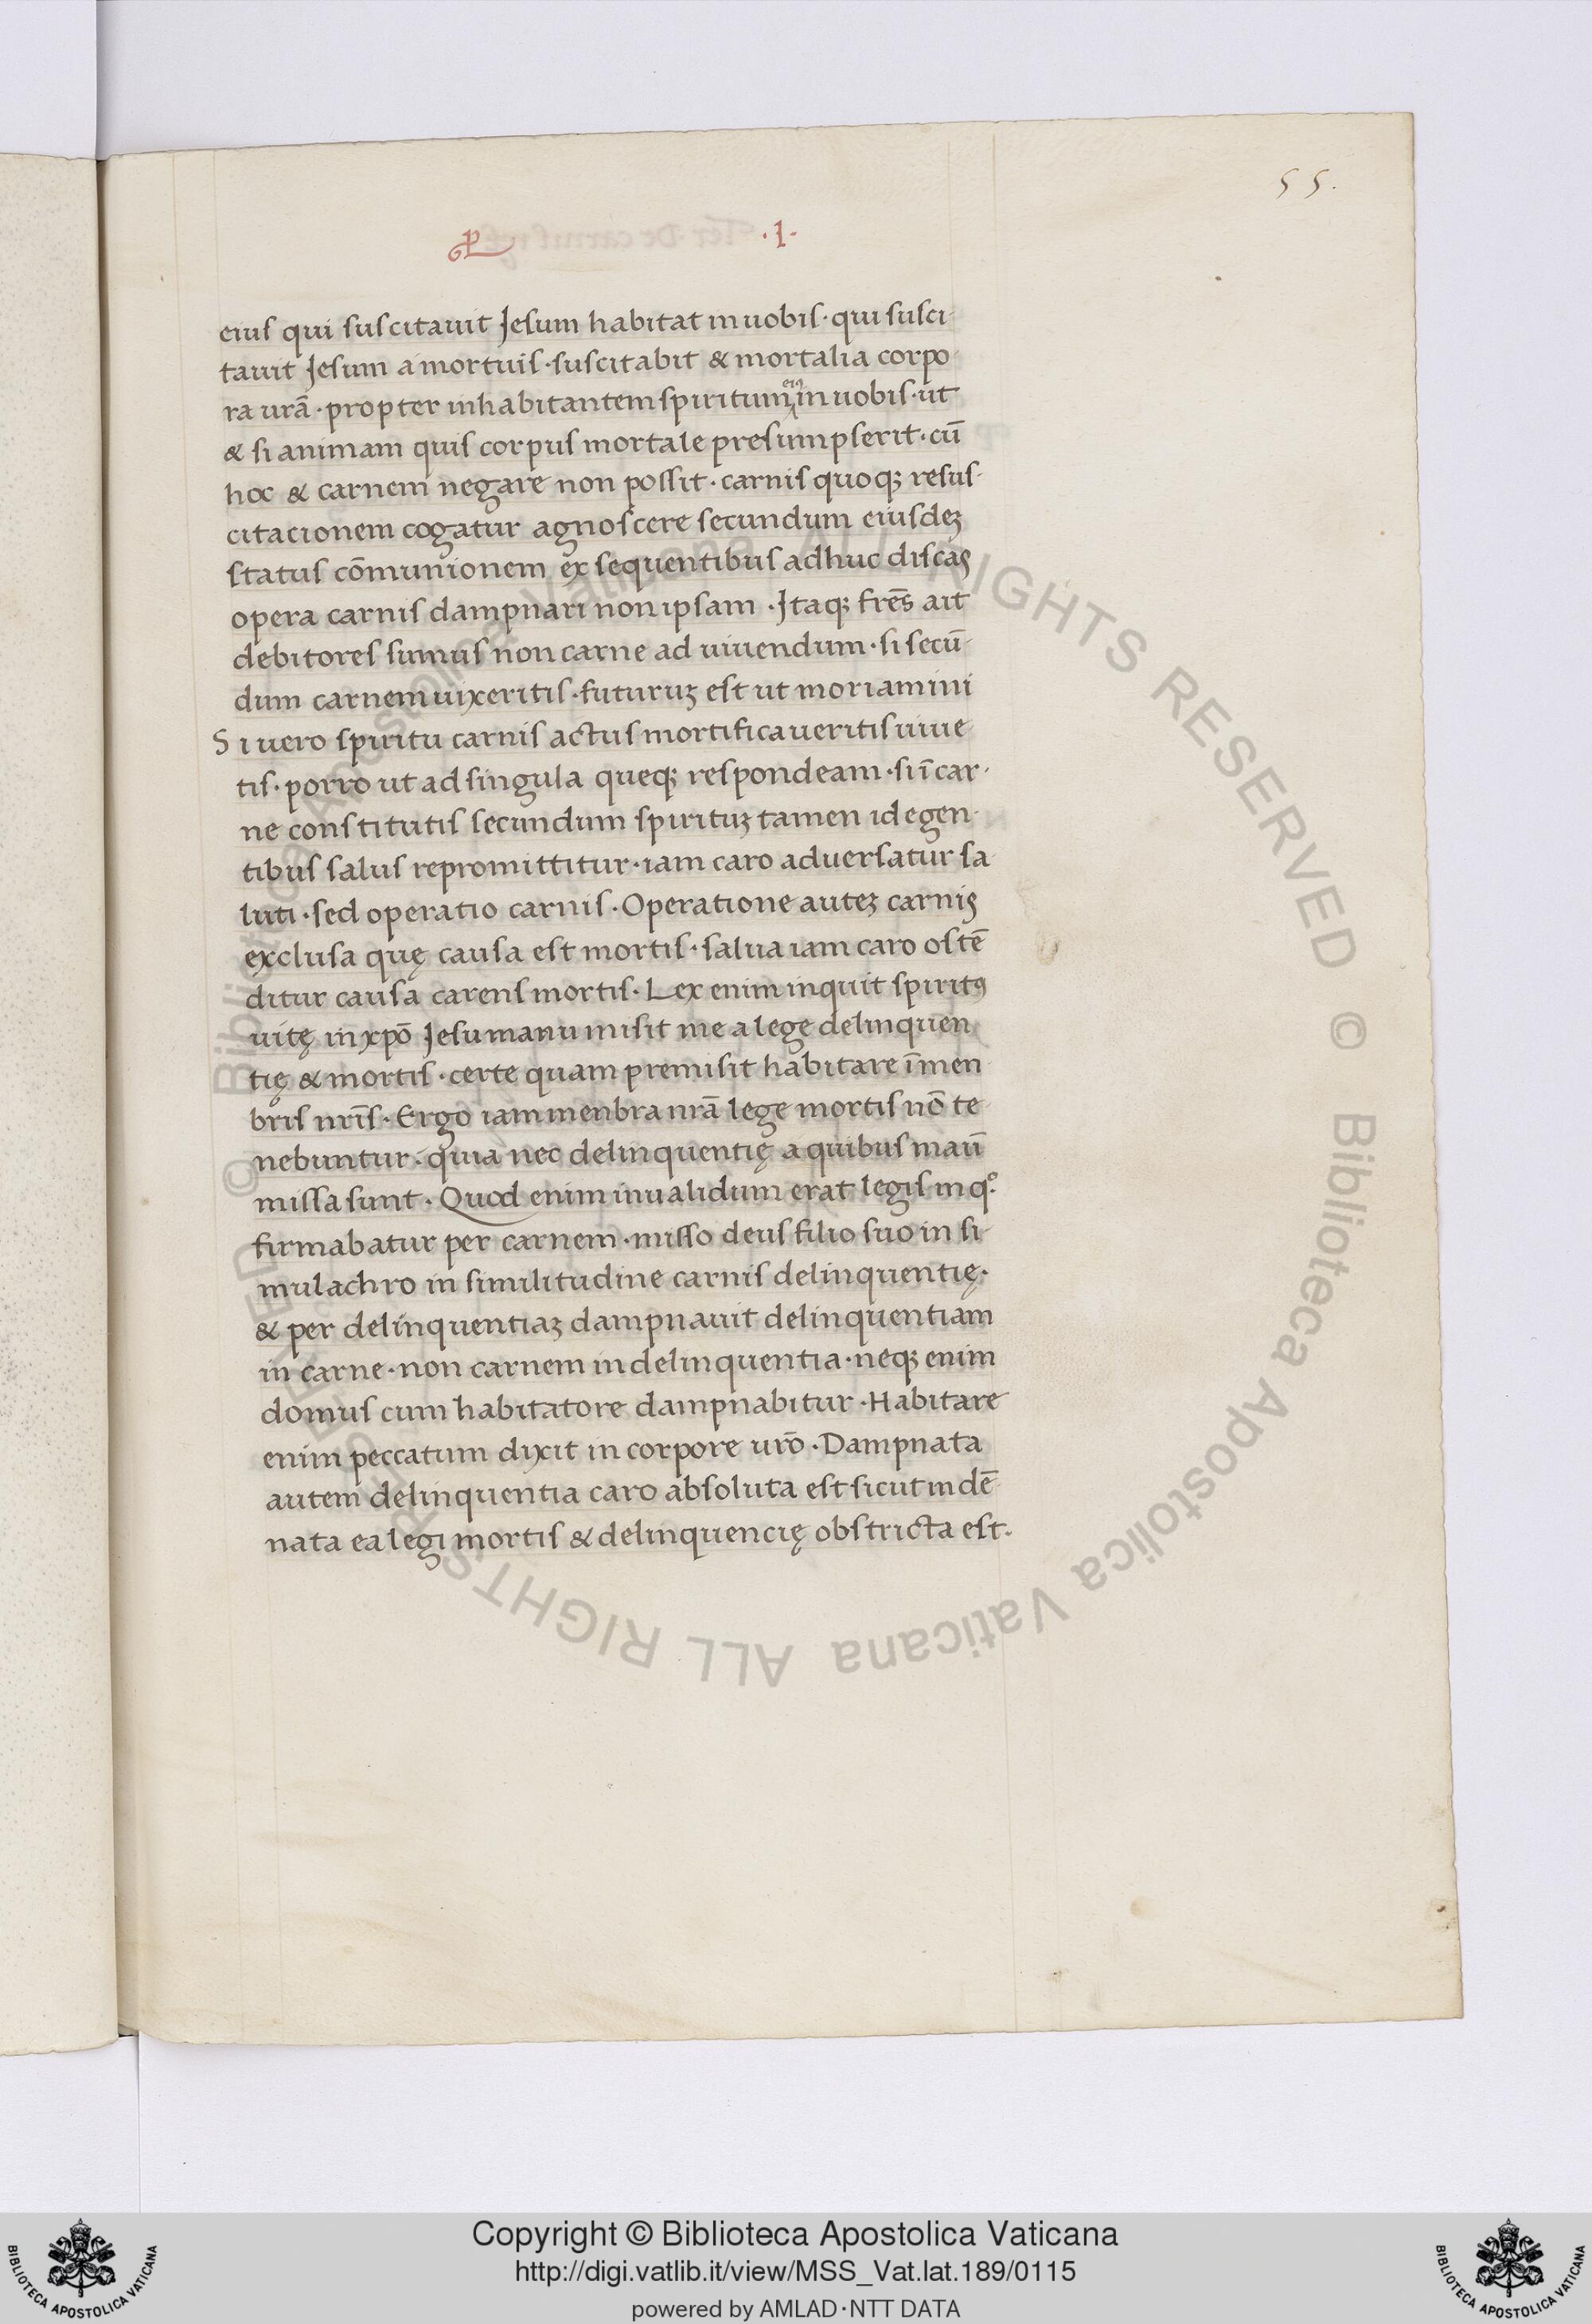 55.
.I.
eius qui suscitauit Jesum habitat in uobis · qui susci-
tauit Jesum a mortuis · suscitabit & mortalia corpo-
ra urã · propter inhabitantem spiritum ei9 in uobis · ut
& si animam quis corpus mortale presumpserit · cũ
hoc & carnem negare non possit · carnis quoqꝫ resus-
citacionem cogatur agnoscere secundum eiusdeꝫ
status cõmunionem ex sequentibus adhuc discas
opera carnis dampnari non ipsam · Jtaqꝫ fr̃es ait
debitores sumus non carne ad uiuendum · si secũ-
dum carnem uixeritis · futuruꝫ est ut moriamini
Si uero spiritu carnis actus mortificaueritis uiue-
tis · porro ut ad singula queqꝫ respondeam · si ĩ car-
ne constitutis secundum spirituꝫ tamen id egen-
tibus salus repromittitur · iam caro aduersatur sa-
luti · sed operatio carnis · Operatione auteꝫ carnis
exclusa quę causa est mortis · salua iam caro ostẽ
ditur causa carens mortis · Lex enim inquit spirit9
uitę in xp̃o Jesu manu misit me a lege delinquen
tię & mortis · certe quam premisit habitare ĩ men-
bris nr̃is · Ergo iam menbra nrã lege mortis nõ te-
nebuntur · quia nec delinquentię a quibus maũ
missa sunt · Quod enim inualidum erat legis in qº·
firmabatur per carnem · misso deus filio suo in si-
mulachro in similitudine carnis delinquentię ·
& per delinquentiaꝫ dampnauit delinquentiam
in carne · non carnem in delinquentia · neqꝫ enim
domus cum habitatore dampnabitur · Habitare
enim peccatum dixit in corpore ur̃o · Dampnata
autem delinquentia caro absoluta est sicut in dẽ-
nata ea legi mortis & delinquencię obstricta est.
© Biblioteca Apostolica Vaticana ALL RIGHTS RESERVED © Biblioteca Apostolica Vaticana ALL RIGHTS RESERVED
Copyright © Biblioteca Apostolica Vaticana
http://digi.vatlib.it/view/MSS_Vat.lat.189/0115
powered by AMLAD·NTT DATA
BIBLIOTECA APOSTOLICA VATICANA
BIBLIOTECA APOSTOLICA VATICANA